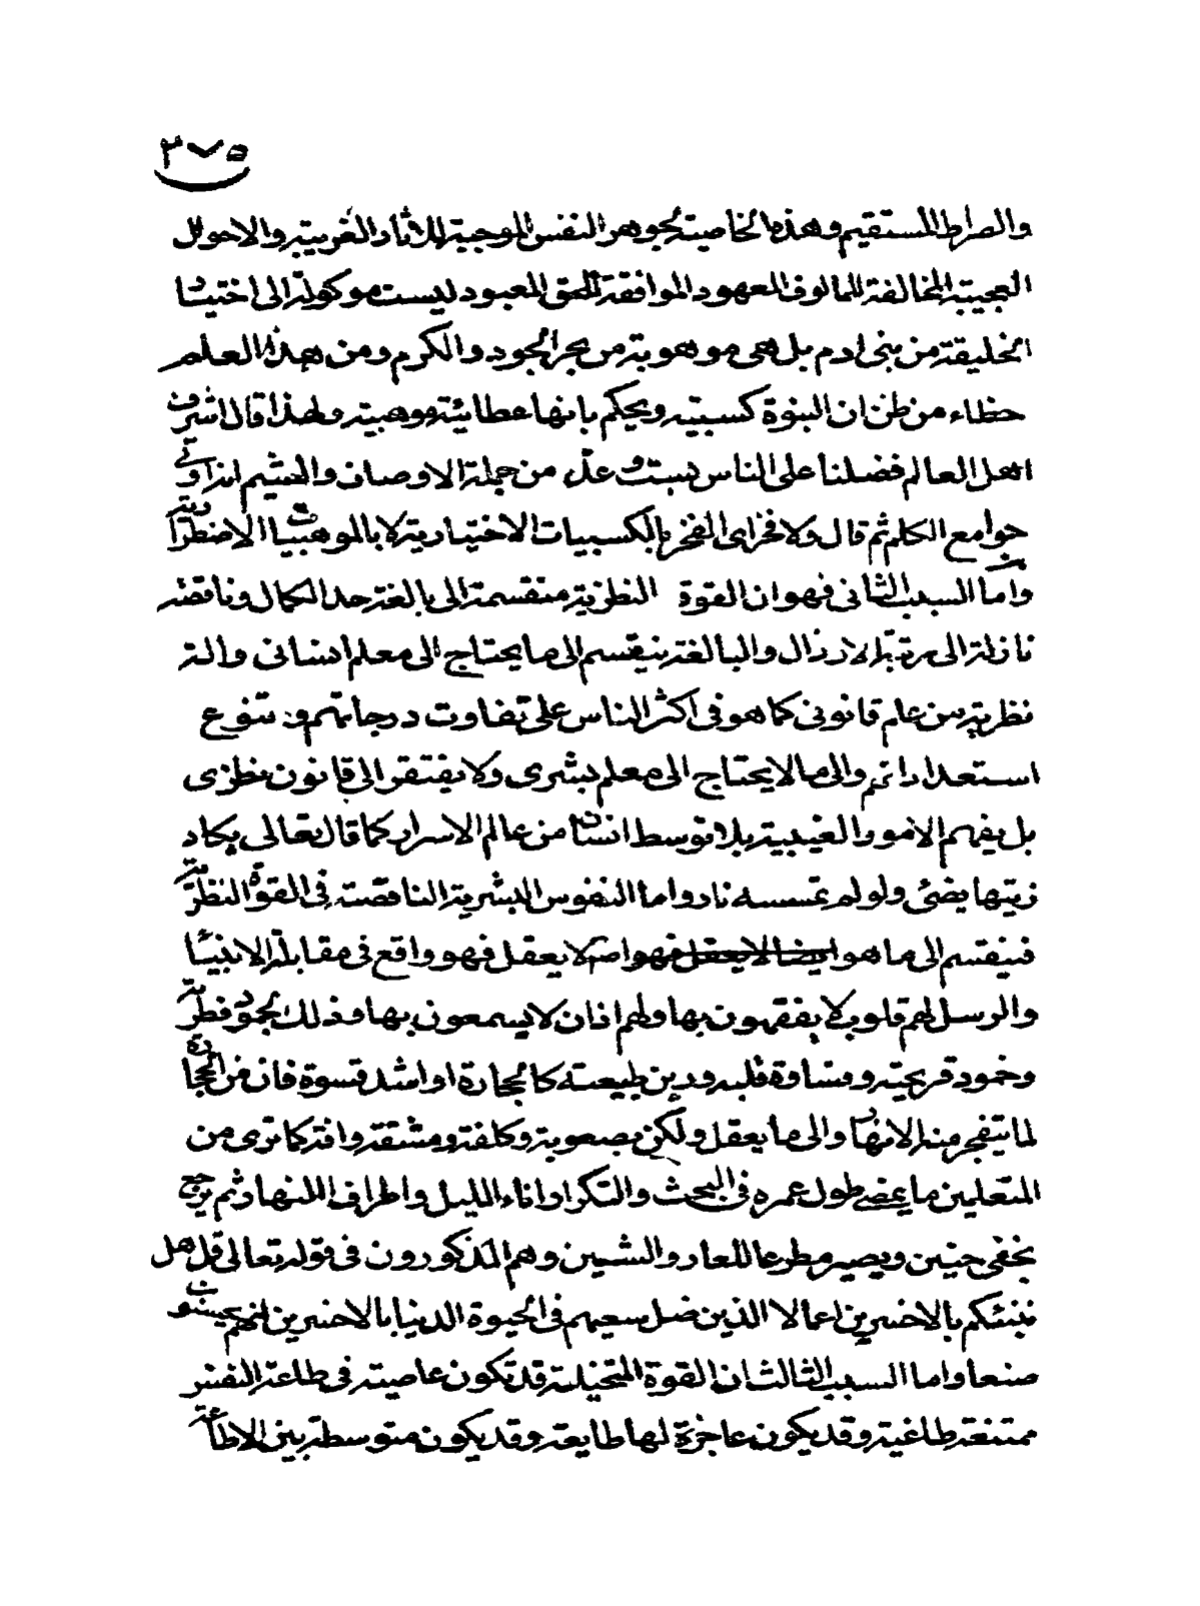 ٣٧٥
والصراط المستقيم وهذه الخاصية لجوهر النفس الموجبة للاثار الغريبة والاحوال
العجيبة المخالفة للمالوف المعهود الموافقة للحق المعبود ليست موكولة الى اختيار
الخليقة من بنى ادم بل هى موهوبة من بحر الجود والكرم ومن هذا العلم
خطاء من ظن ان النبوة كسبية ويحكم بانها عطائية موهبية ولهذا قال اشرف
اهل العالم فضلنا على الناس بست وعدّ من جملة الاوصاف والشيم انه اوتى
جوامع الكلم ثم قال ولا فخر اى الفخر بالكسبيات الاختيارية لا بالموهبيات الاضطرارية
واما السبب الثانى فهو ان القوة النظرية منقسمة الى بالغة حد الكمال وناقصة
نازلة الى مرتبة الارذال والبالغة ينقسم الى ما يحتاج الى معلم انسانى والة
نظرية من عام قانونى كما هو فى اكثر الناس على تفاوت درجاتهم وتنوع
استعداداتهم والى ما لا يحتاج الى معلم بشرى ولا يفتقر الى قانون نظرى
بل يفهم الامور الغيبية بلا توسط انسان من عالم الاسرار كما قال تعالى يكاد
زيتها يضئ ولو لم تمسسه نار واما النفوس البشرية الناقصة فى القوة النظرية
فينقسم الى ما هو ايضا لا يعقل فهو اصلا يعقل فهو واقع فى مقابلة الانبياء
والرسل لهم قلوب لا يفقهون بها ولهم اذان لا يسمعون بها وذلك لجمود فطرته
وخمود قريحته وقساوة قلبه ودين طبيعته كالحجارة او اشد قسوة فان من الحجارة
لما يتفجر منه الانهار والى ما يعقل ولكن بصعوبة وكلفة ومشقة وافة كما ترى من
المتعلمين ما يمضى طول عمره فى البحث والتكرار اناء الليل واطراف النهار ثم يرجع
بخفى حنين ويصير مطرحا للعار والشين وهم المذكورون فى قوله تعالى قل هل
ننبئكم بالاخسرين اعمالا الذين ضل سعيهم فى الحيوة الدنيا بالاخسرين انهم يحسنون
صنعا واما السبب الثالث ان القوة المتخيلة قد تكون عاصية فى طاعة النفس
ممتنعة طاغية وقد يكون عاجزة لها طايعة وقد يكون متوسطة بين الاطاعة